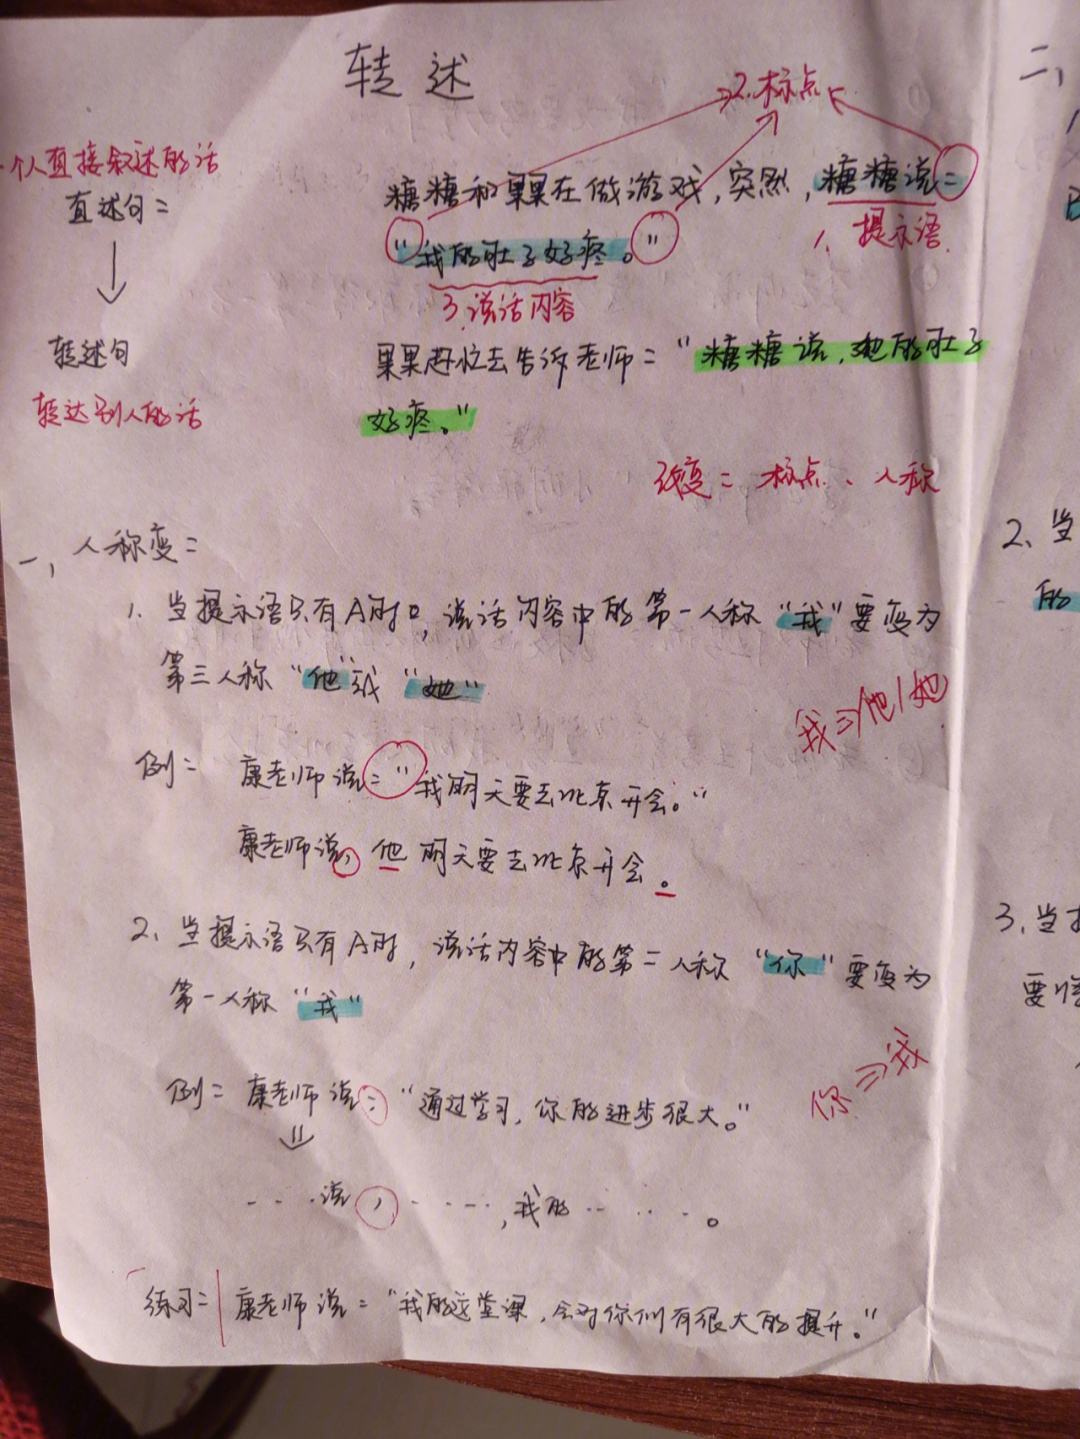 转述
2.标点
二、
个人直接叙述的话
直述句：
糖糖和果果在做游戏，突然，糖糖说：
“我的肚子好疼。”
1、提示语
3.说话内容
转述句
转达别人的话
果果赶忙去告诉老师：“糖糖说，她的肚子
好疼。”
改变：标点、人称
一，人称变：
1. 当提示语只有A时，说话内容中的第一人称“我”要变为
第三人称“他”或“她”
我⇒他/她
例：康老师说：“我明天要去北京开会。”
康老师说，他明天要去北京开会。
2、当提示语只有A时，说话内容中的第二人称“你”要变为
第一人称“我”
你⇒我
例：康老师说：“通过学习，你的进步很大。”
⇓
····说，·····，我的·····。
练习：康老师说：“我的这堂课，会对你们有很大的提升。”
2、当
的
3、当
要